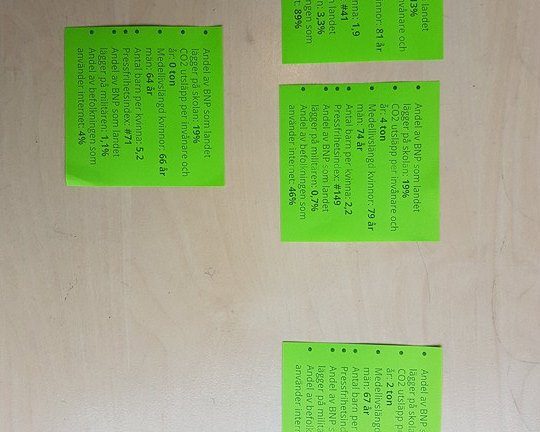 • Andel av BNP som landet
lägger på skolan: 19%
• CO2 utsläpp per invånare och
år: 0 ton
• Medellivslängd kvinnor: 66 år
män: 64 år
• Antal barn per kvinna: 5,2
• Pressfrihetsindex: #71
• Andel av BNP som landet
lägger på militären: 1,1%
• Andel av befolkningen som
använder internet: 4%
13%
och
kvinnor: 81 år
nna: 1,9
#41
landet
n: 3,3%
ngen som
t: 89%
• Andel av BNP som landet
lägger på skolan: 19%
• CO2 utsläpp per invånare och
år: 4 ton
• Medellivslängd kvinnor: 79 år
män: 74 år
• Antal barn per kvinna: 2,2
• Pressfrihetsindex: #149
• Andel av BNP som landet
lägger på militären: 0,7%
• Andel av befolkningen som
använder internet: 46%
• Andel av BNP
lägger på skol
• CO2 utsläpp p
år: 2 ton
• Medellivsläng
män: 67 år
• Antal barn per
• Pressfrihetsin
• Andel av BNP
lägger på milit
• Andel av befol
använder inter